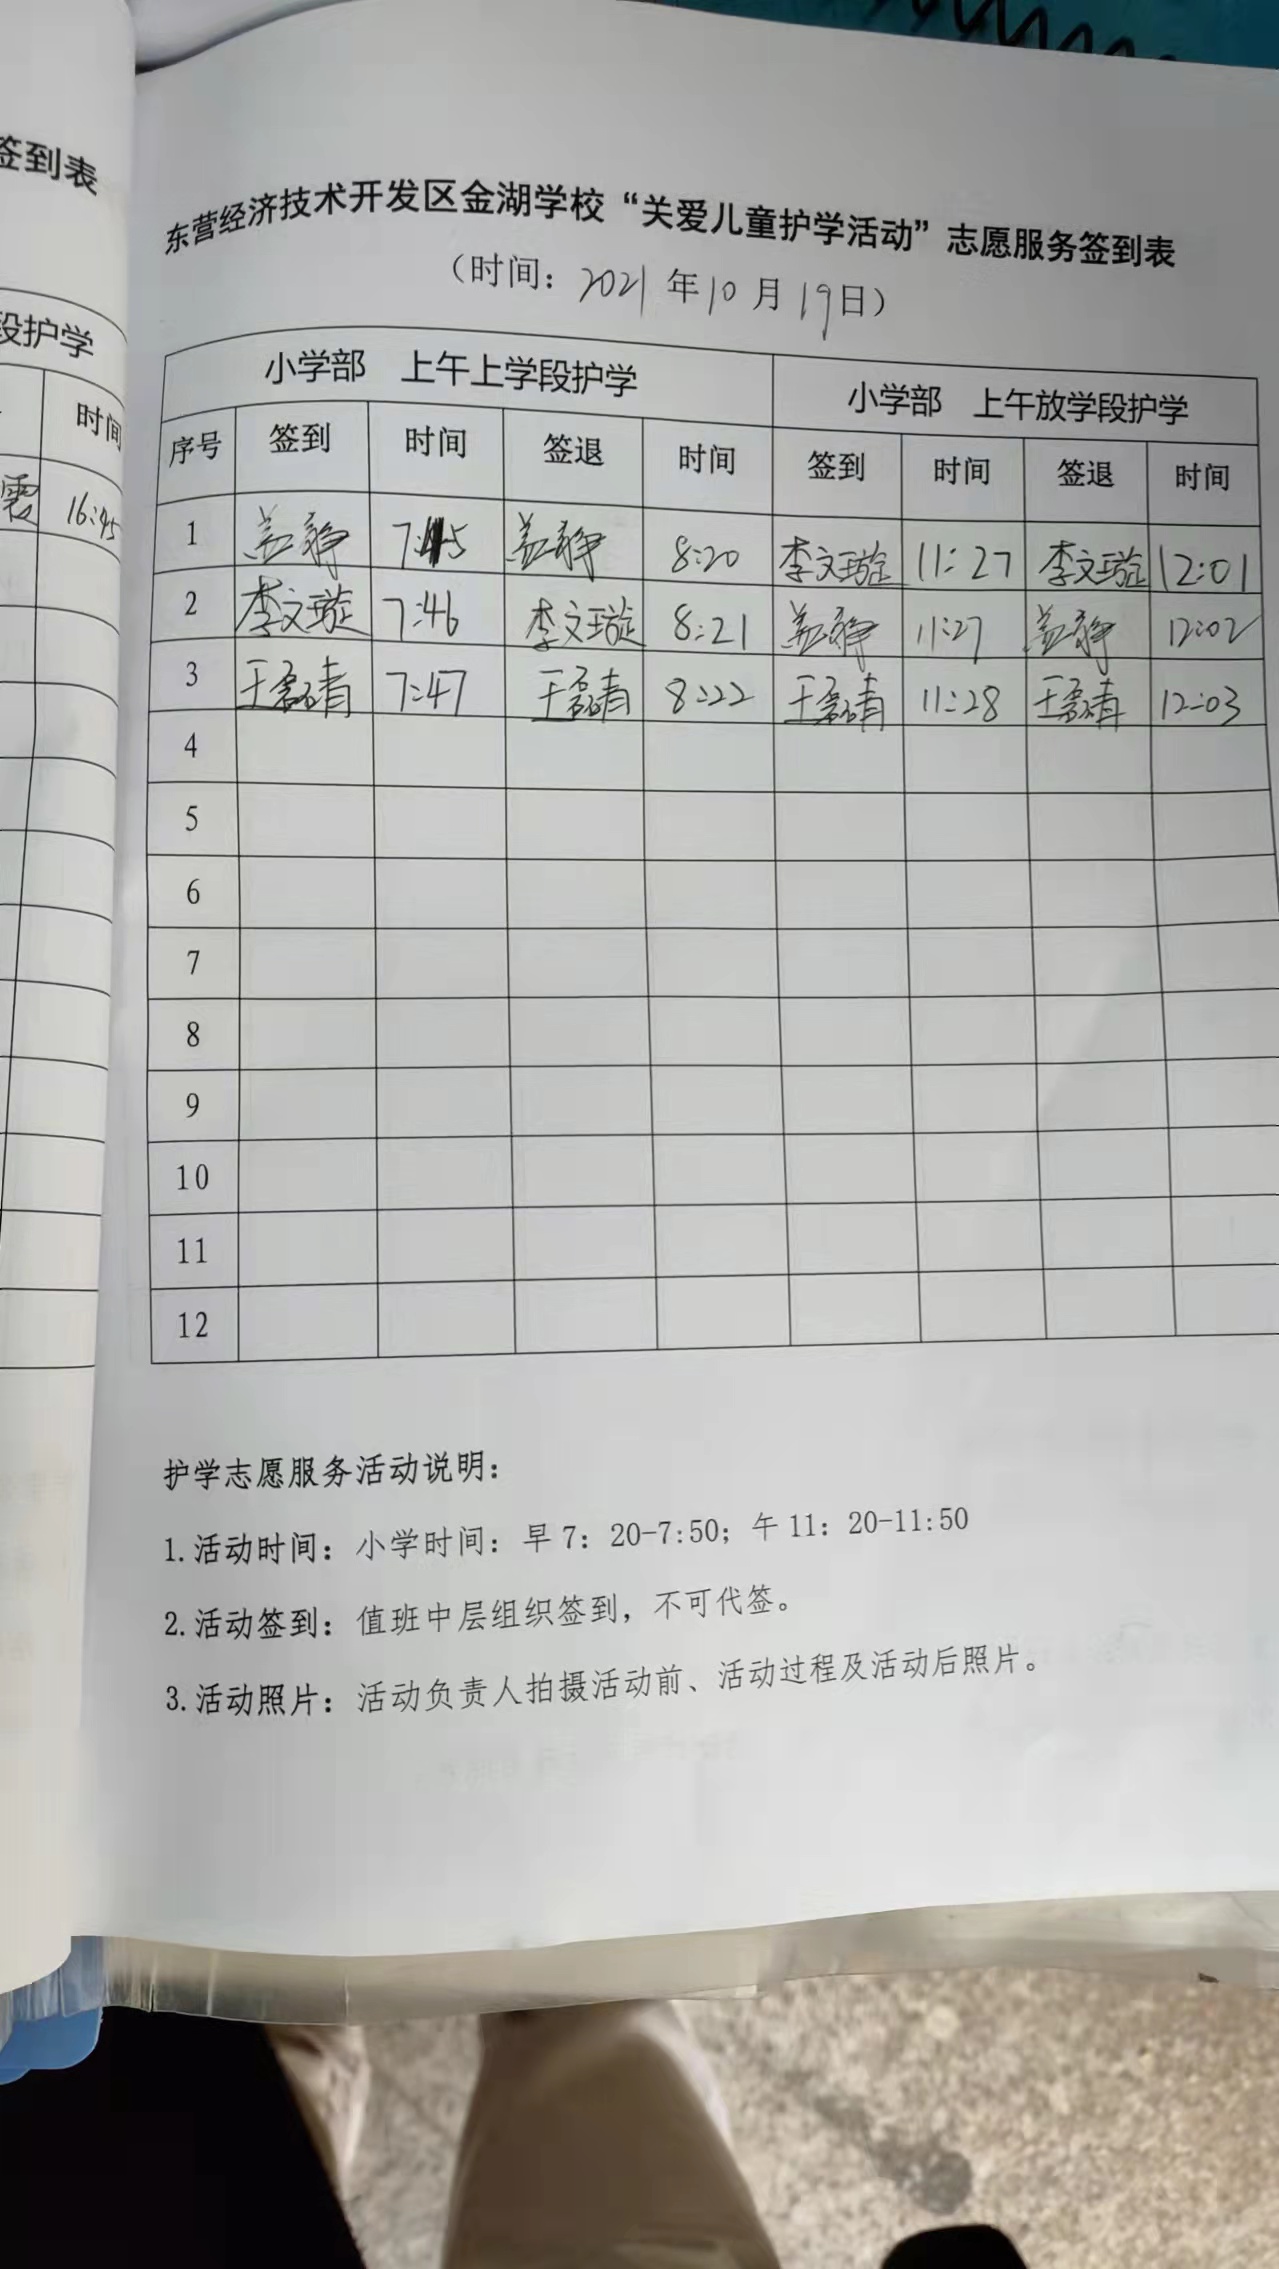 签到表
段护学
时间
霞 16:45
东营经济技术开发区金湖学校“关爱儿童护学活动”志愿服务签到表
（时间：2021年10月19日）
小学部 上午上学段护学 小学部 上午放学段护学
序号 签到 时间 签退 时间 签到 时间 签退 时间
1 盖静 7:45 盖静 8:20 李文璇 11:27 李文璇 12:01
2 李文璇 7:46 李文璇 8:21 盖静 11:27 盖静 12:02
3 王磊青 7:47 王磊青 8:22 王磊青 11:28 王磊青 12:03
4
5
6
7
8
9
10
11
12
护学志愿服务活动说明：
1.活动时间：小学时间：早7：20-7:50；午11：20-11:50
2.活动签到：值班中层组织签到，不可代签。
3.活动照片：活动负责人拍摄活动前、活动过程及活动后照片。